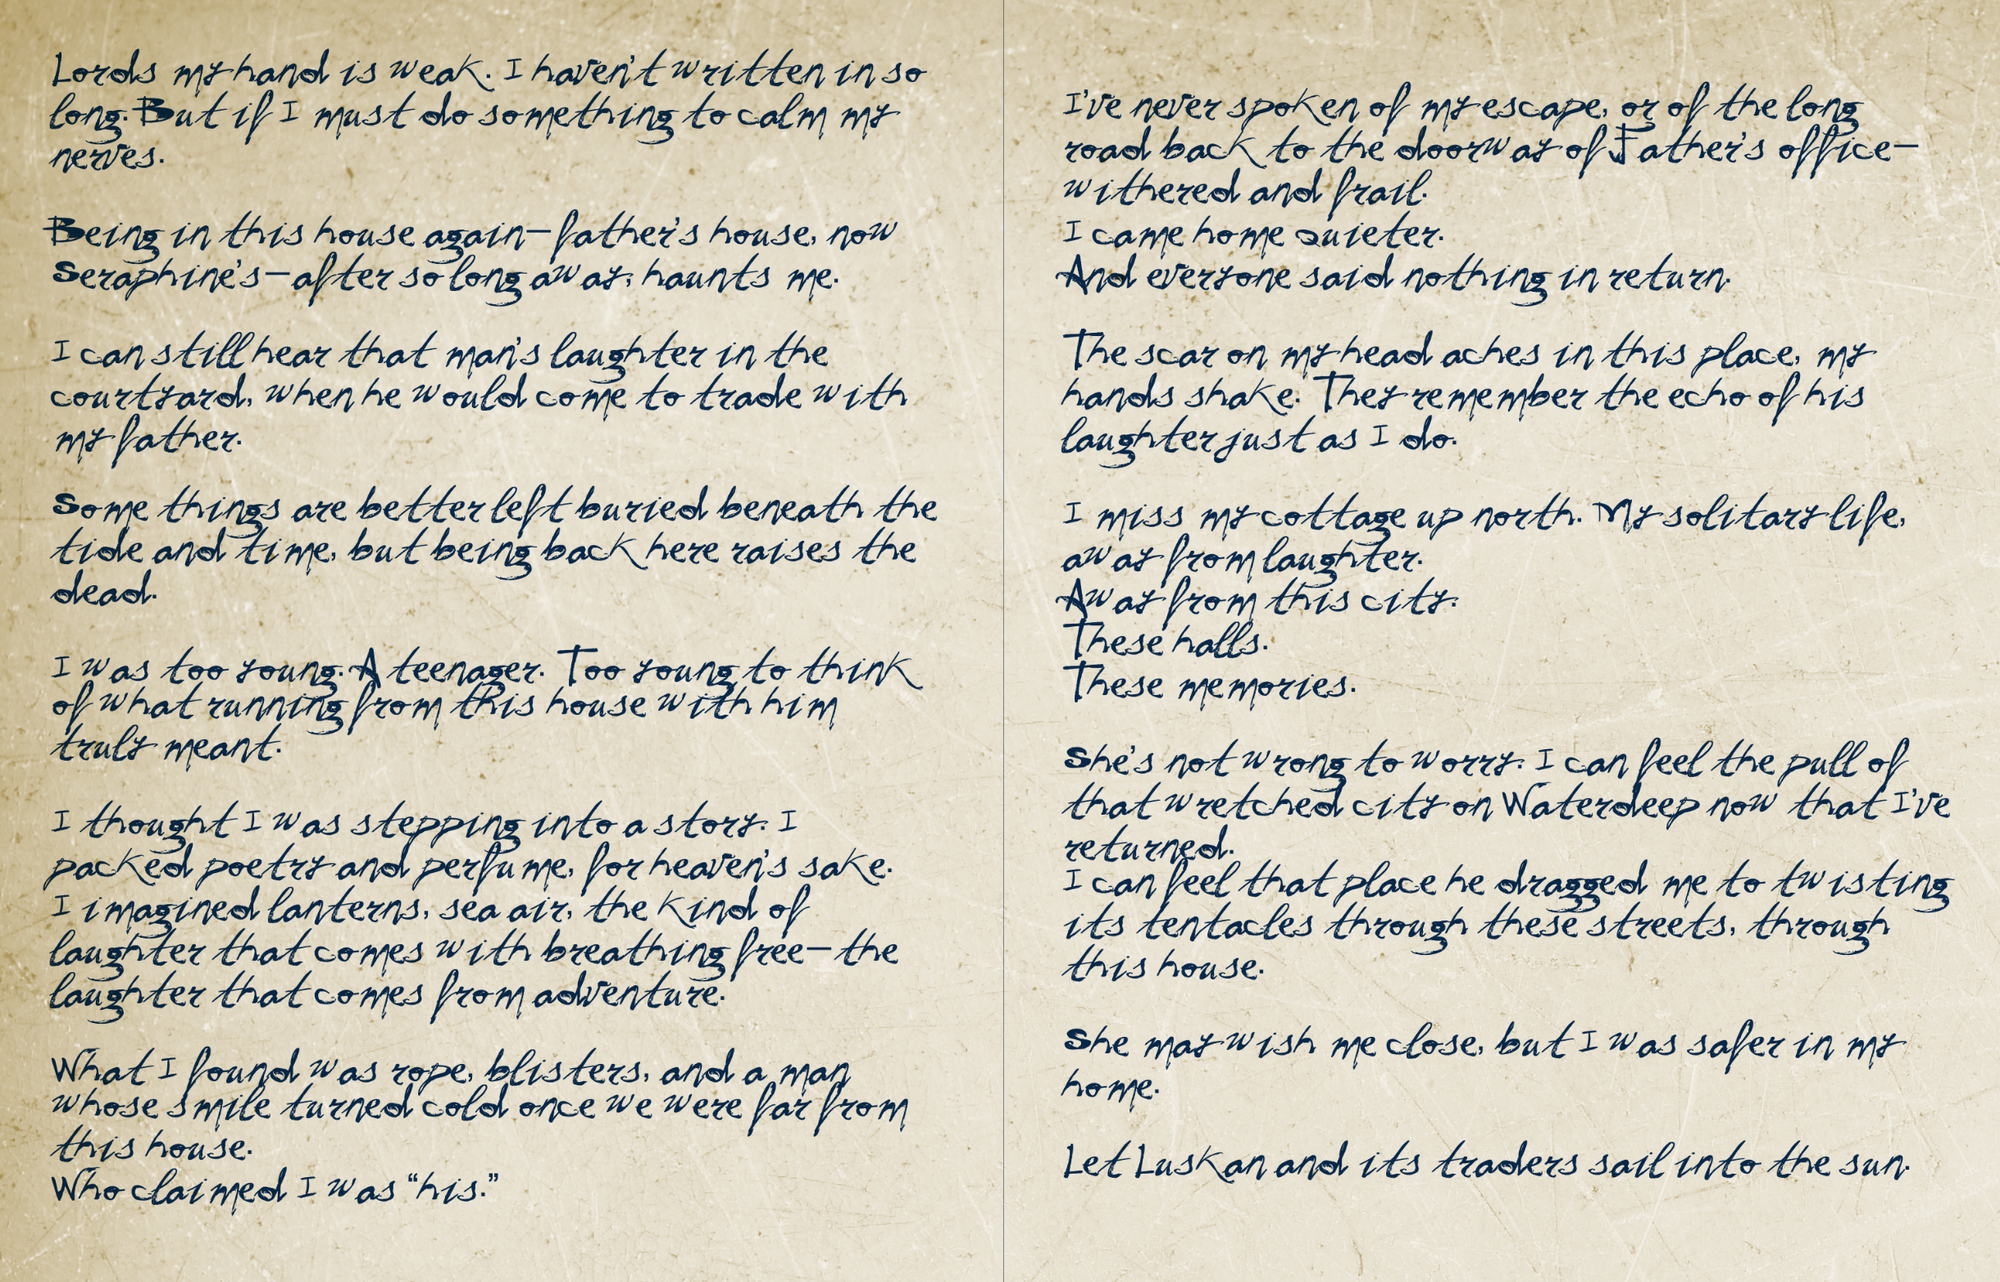 Lords my hand is weak. I haven't written in so
long. But if I must do something to calm my
nerves.
Being in this house again—father's house, now
Seraphine's—after so long away, haunts me.
I can still hear that man's laughter in the
courtyard, when he would come to trade with
my father.
Some things are better left buried beneath the
tide and time, but being back here raises the
dead.
I was too young. A teenager. Too young to think
of what running from this house with him
truly meant.
I thought I was stepping into a story. I
packed poetry and perfume, for heaven's sake.
I imagined lanterns, sea air, the kind of
laughter that comes with breathing free—the
laughter that comes from adventure.
What I found was rope, blisters, and a man
whose smile turned cold once we were far from
this house.
Who claimed I was “his.”
I've never spoken of my escape, or of the long
road back to the doorway of Father's office—
withered and frail.
I came home quieter.
And everyone said nothing in return.
The scar on my head aches in this place, my
hands shake. They remember the echo of his
laughter just as I do.
I miss my cottage up north. My solitary life,
away from laughter.
Away from this city.
These halls.
These memories.
She's not wrong to worry. I can feel the pull of
that wretched city on Waterdeep now that I've
returned.
I can feel that place he dragged me to twisting
its tentacles through these streets, through
this house.
She may wish me close, but I was safer in my
home.
Let Luskan and its traders sail into the sun.